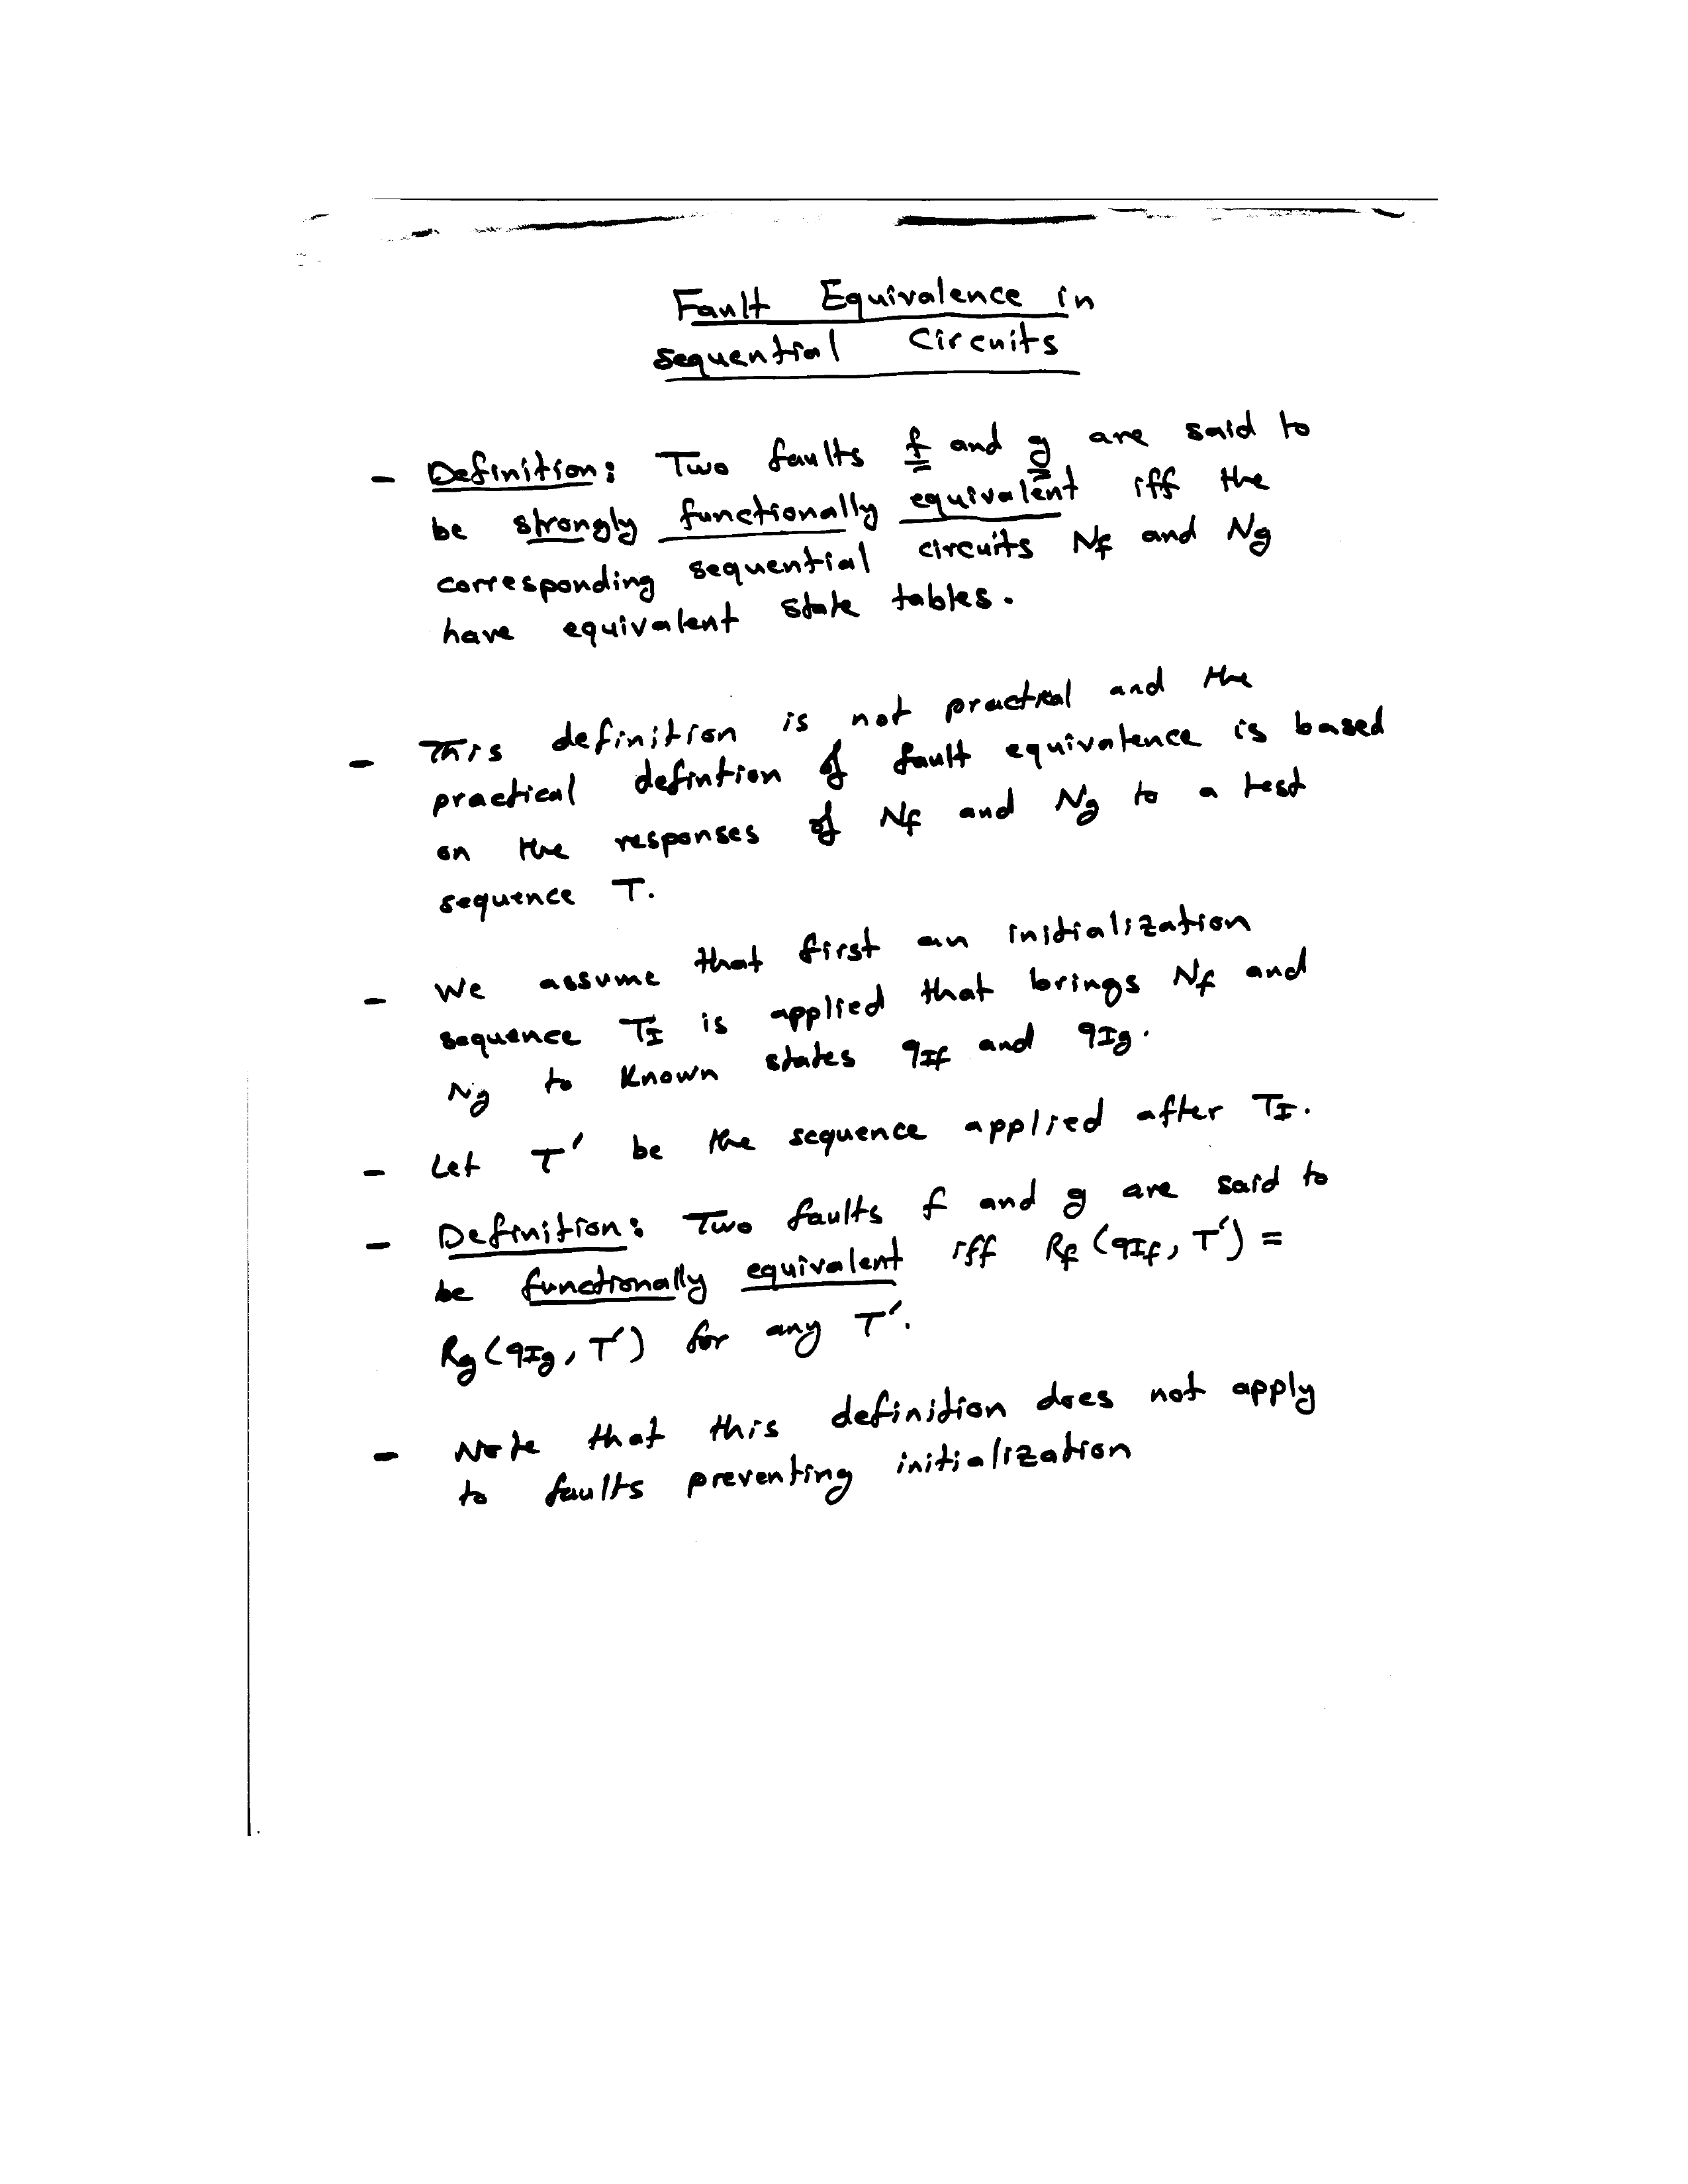 Fault Equivalence in
sequential Circuits
- Definition: Two faults f and g are said to
be strongly functionally equivalent iff the
corresponding sequential circuits Nf and Ng
have equivalent state tables.
- This definition is not practical and the
practical defintion of fault equivalence is based
on the responses of Nf and Ng to a test
sequence T.
- We assume that first an initialization
sequence TI is applied that brings Nf and
Ng to known states qIf and qIg.
- Let T' be the sequence applied after TI.
- Definition: Two faults f and g are said to
be functionally equivalent iff Rf (qIf, T') =
Rg (qIg, T') for any T'.
- Note that this definition does not apply
to faults preventing initialization